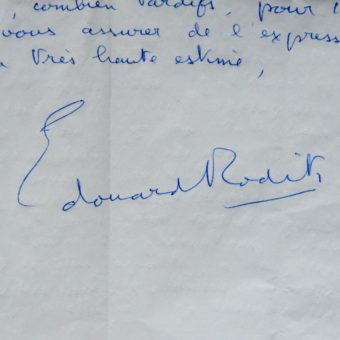 , combien tardifs, pour
vous assurer de l'express
très haute estime,
Edouard Roditi